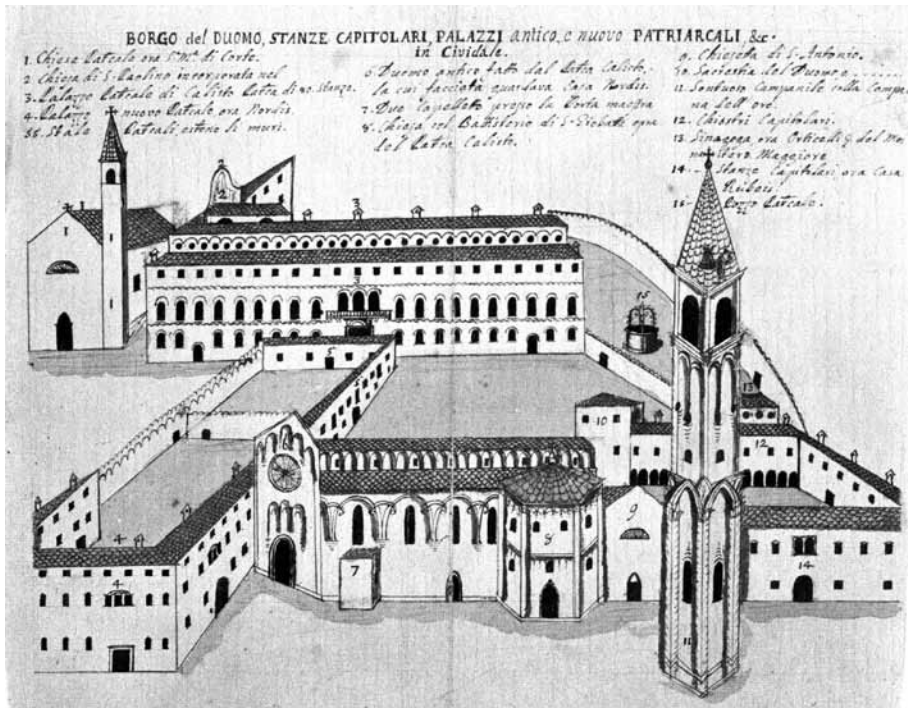 BORGO del DUOMO, STANZE CAPITOLARI, PALAZZI antico, e nuovo PATRIARCALI, &c.
in Cividale.
1. Chiesa Patcale ora S. Mª. di Corte.
2. Chiesa di S. Paolino incorporata nel
3. Palazzo Patcale di Calisto Patra di 80. Stanze.
4. Palazzo nuovo Patcale ora Nordis.
55. Stale Patcali, cinte di muri.
6. Duomo antico fatto dal Patra Calisto,
la cui facciata guardava Casa Nordis.
7. Due Capellette presso la Porta maestra
8. Chiesa col Battisterio di S. Giobatt. opa
del Patra Calisto.
9. Chiesita di S. Antonio.
10. Sacrastia del Duomo
11. Sontuoso Campanile colla Campa
na dell' ore.
12. Chiostri Capitolari.
13. Sinagoga, ora Orticelli del Mo
nastero Maggiore
14. Stanze Capitolari, ora Casa
Rubeis.
15. Pozzo Patcale.
2
3
15
3
5
13
10
12
6
4
9
8
7
14
4
11